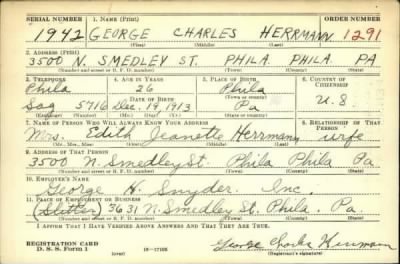 SERIAL NUMBER 1. NAME (Print) ORDER NUMBER
1942 GEORGE CHARLES HERRMANN 1291
(First) (Middle) (Last)
2. ADDRESS (Print)
3500 N. SMEDLEY ST. PHILA. PHILA. PA
(Number and street or R. F. D. number) (Town) (County) (State)
3. TELEPHONE 4. AGE IN YEARS 5. PLACE OF BIRTH 6. COUNTRY OF CITIZENSHIP
Phila 26 Phila
DATE OF BIRTH (Town or county)
Sag 5716 Dec. 19, 1913 Pa U.S.
(Exchange) (Number) (Mo.) (Day) (Yr.) (State or country)
7. NAME OF PERSON WHO WILL ALWAYS KNOW YOUR ADDRESS 8. RELATIONSHIP OF THAT PERSON
Mrs. Edith Jeanette Herrmann wife
(Mr., Mrs., Miss) (First) (Middle) (Last)
9. ADDRESS OF THAT PERSON
3500 N. Smedley St. Phila Phila Pa
(Number and street or R. F. D. number) (Town) (County) (State)
10. EMPLOYER'S NAME
George H. Snyder. Inc.
11. PLACE OF EMPLOYMENT OR BUSINESS
(Slitter) 3631 N. Smedley St. Phila. Pa.
(Number and street or R. F. D. number) (Town) (County) (State)
I AFFIRM THAT I HAVE VERIFIED ABOVE ANSWERS AND THAT THEY ARE TRUE.
REGISTRATION CARD
D. S. S. Form 1 (over) George Charles Herrmann
(Registrant's signature)